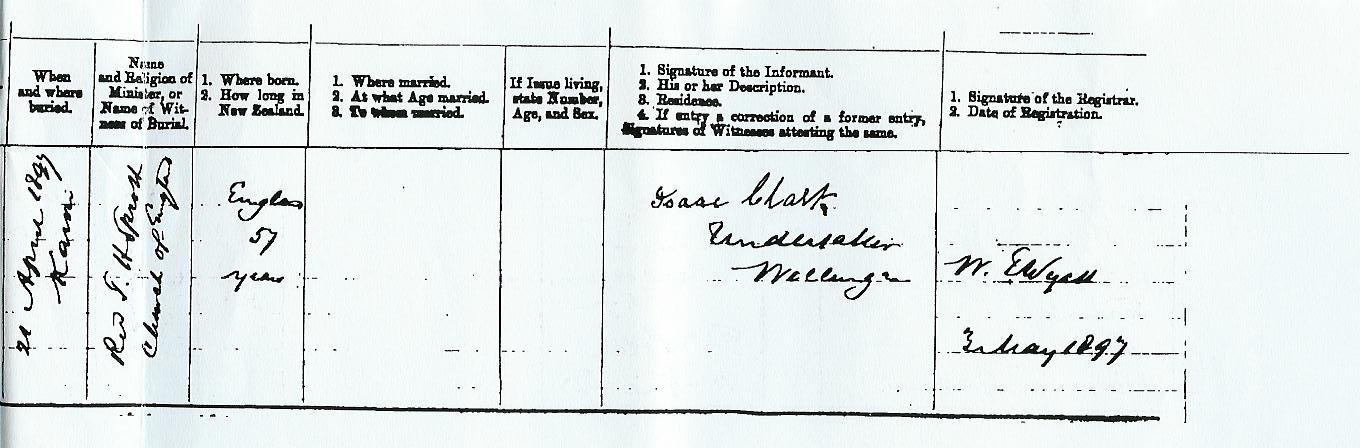 When
and where
buried.
Name
and Religion of
Minister, or
Name of Wit-
ness of Burial.
1. Where born.
2. How long in
New Zealand.
1. Where married.
2. At what Age married.
3. To whom married.
If Issue living,
state Number,
Age, and Sex.
1. Signature of the Informant.
2. His or her Description.
3. Residence.
4. If entry a correction of a former entry,
Signatures of Witnesses attesting the same.
1. Signature of the Registrar.
2. Date of Registration.
April 1897
Karori
Rev T. H. Sprott
Church of England
England
57
years
Isaac Clark
Undertaker
Wellington
W. E Wyatt
3 May 1897